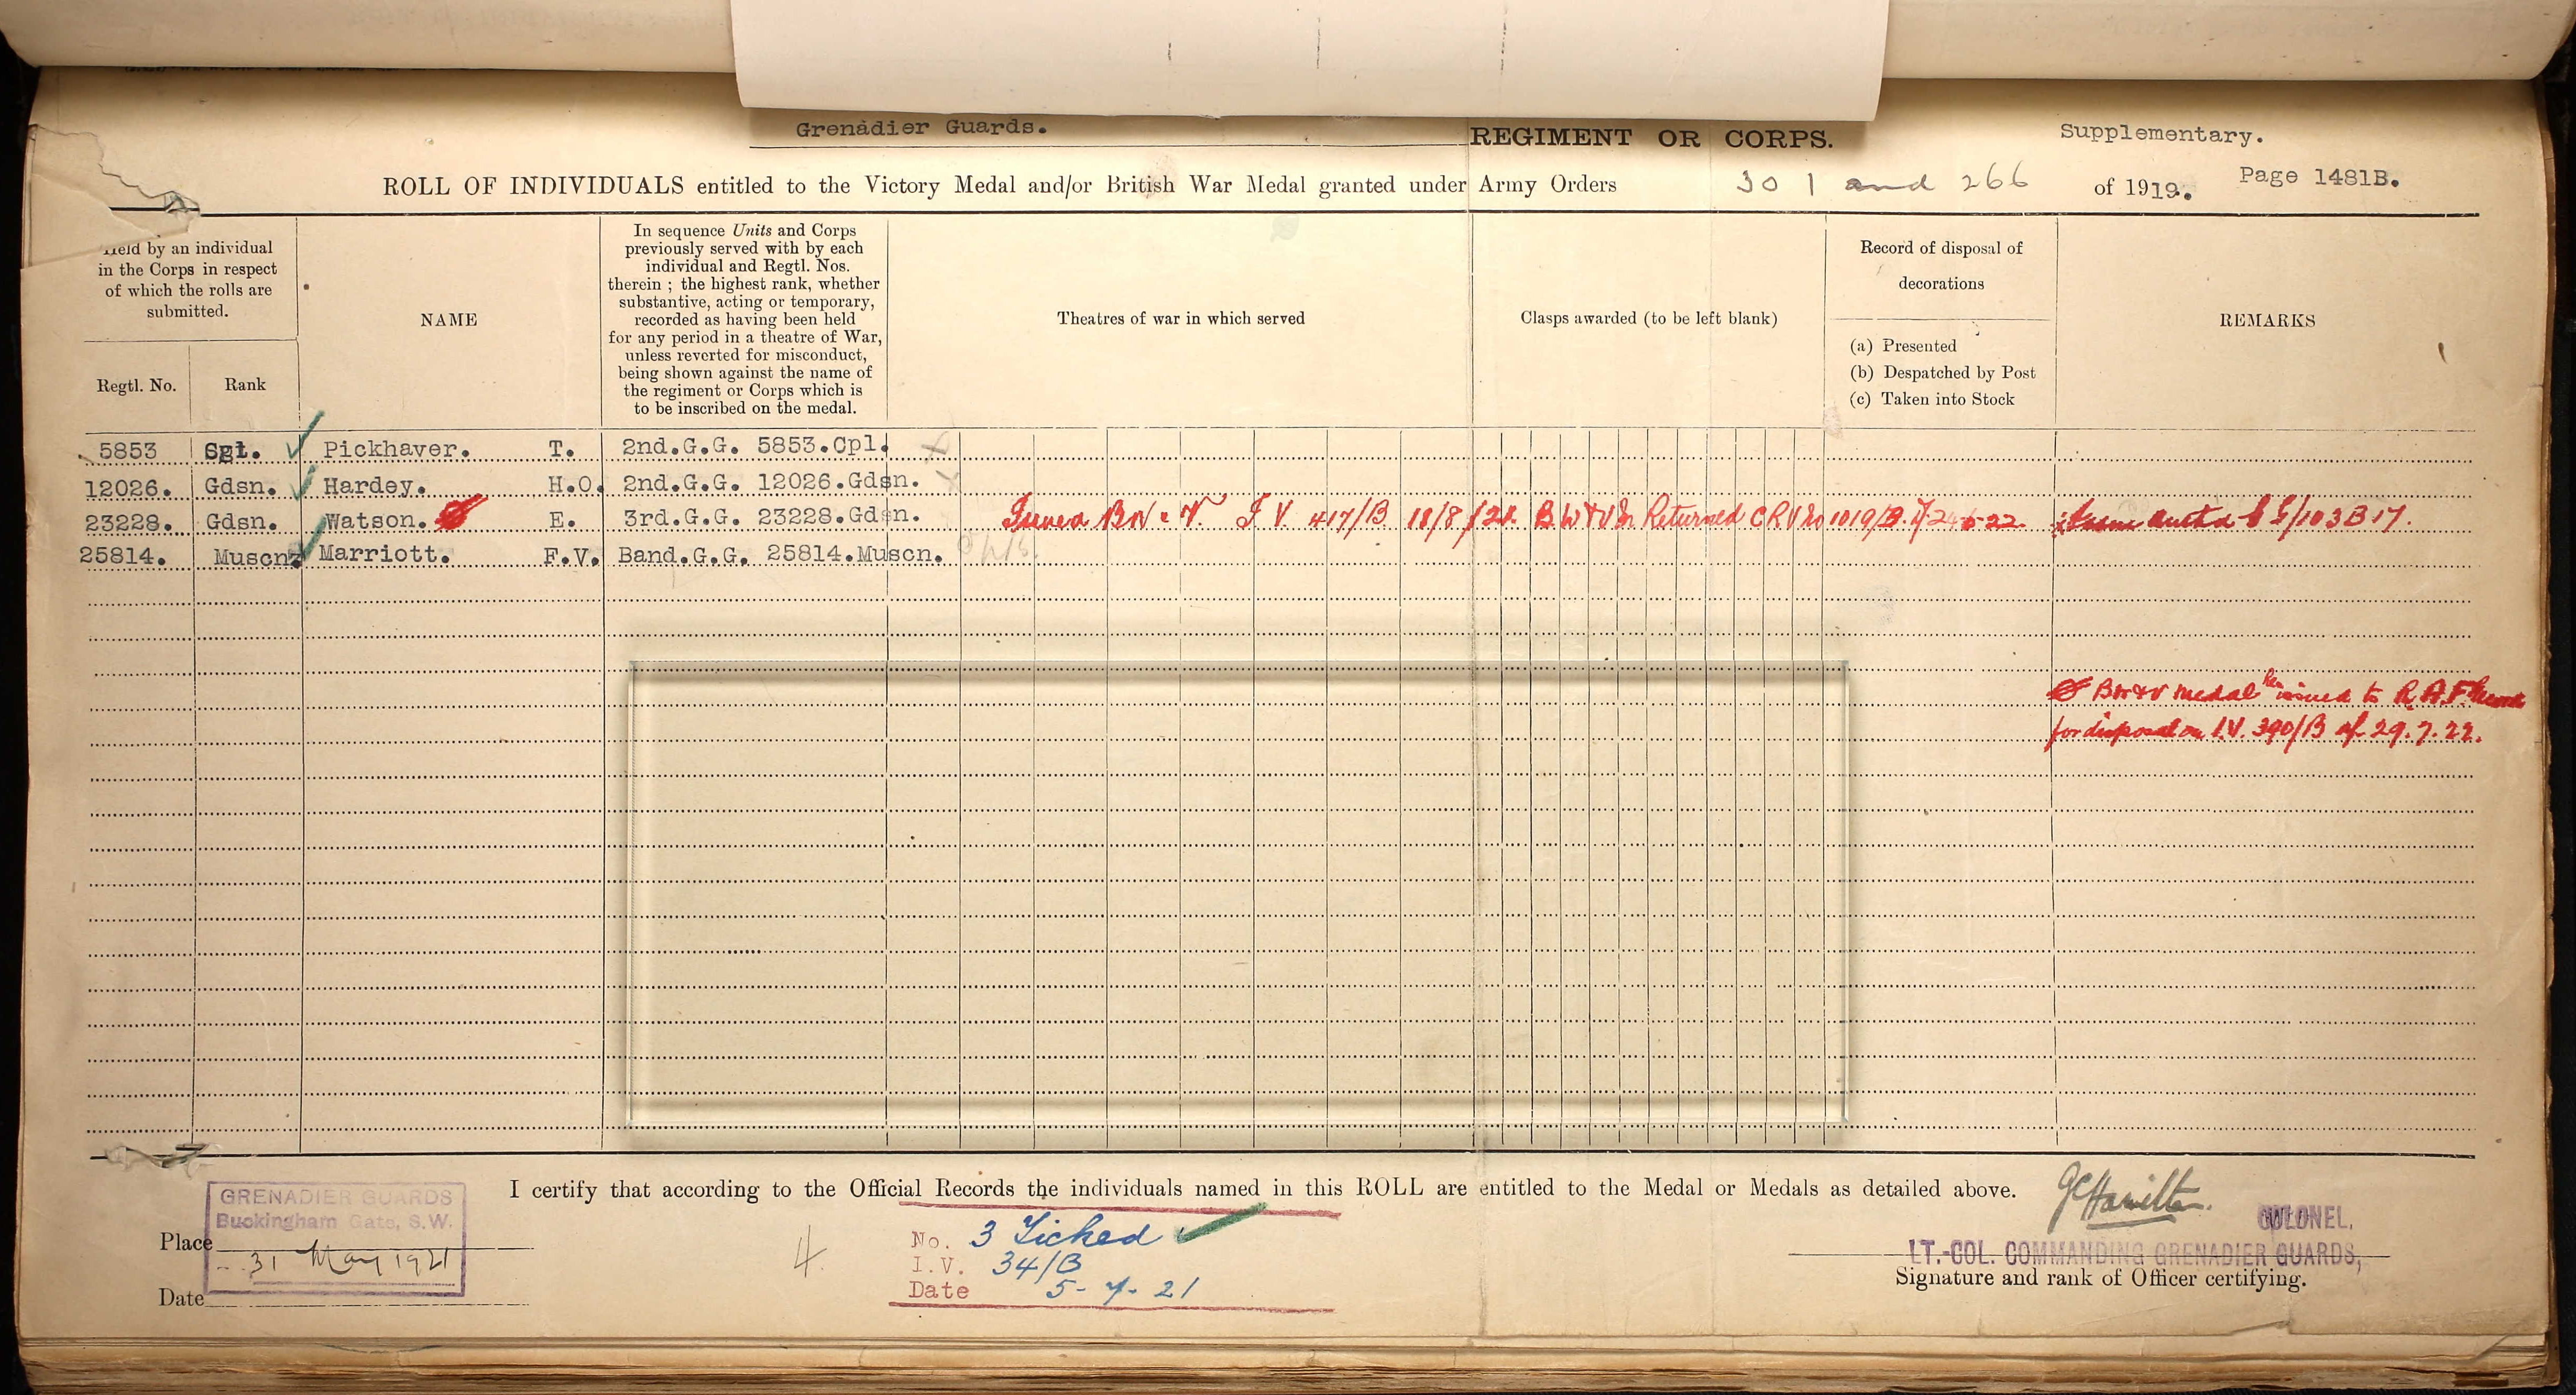 Grenadier Guards. REGIMENT OR CORPS. Supplementary.
ROLL OF INDIVIDUALS entitled to the Victory Medal and/or British War Medal granted under Army Orders 301 and 266 of 1919. Page 1481B.
Held by an individual
in the Corps in respect
of which the rolls are
submitted.
Regtl. No. Rank
NAME
In sequence Units and Corps
previously served with by each
individual and Regtl. Nos.
therein ; the highest rank, whether
substantive, acting or temporary,
recorded as having been held
for any period in a theatre of War,
unless reverted for misconduct,
being shown against the name of
the regiment or Corps which is
to be inscribed on the medal.
Theatres of war in which served
Clasps awarded (to be left blank)
Record of disposal of
decorations
(a) Presented
(b) Despatched by Post
(c) Taken into Stock
REMARKS
5853 Sgt. Pickhaver. T. 2nd.G.G. 5853.Cpl.
12026. Gdsn. Hardey. H.O. 2nd.G.G. 12026.Gdsn.
23228. Gdsn. Watson. E. 3rd.G.G. 23228.Gdsn. Issued BW & V. I V 417/B 18/8/21. B W & V M Returned C R V 1019/B. 24-6-22 G/103B17.
25814. Muscn. Marriott. F.V. Band.G.G. 25814.Muscn.
BW&V medal issued to R.A.F. Records
for disposal on I.V. 390/B of 29.7.22.
I certify that according to the Official Records the individuals named in this ROLL are entitled to the Medal or Medals as detailed above.
GRENADIER GUARDS
Buckingham Gate, S.W.
Place
31 May 1921
Date
4.
No. 3 Ticked
I.V. 34/B
Date 5-7-21
GCHamilton.
COLONEL,
LT.-COL. COMMANDING GRENADIER GUARDS,
Signature and rank of Officer certifying.